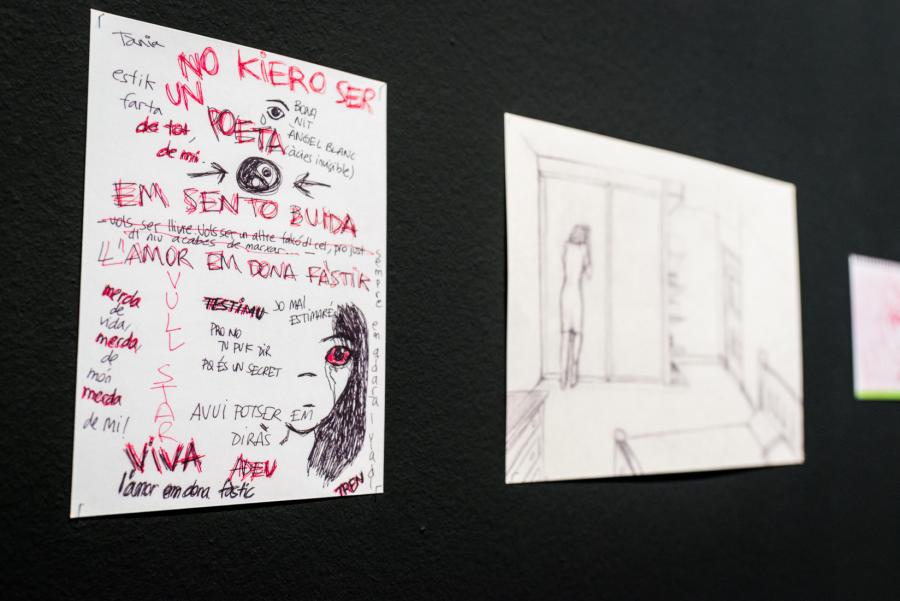 Tania
NO KIERO SER
UN
POETA
estik
farta
de tot,
de mi..
BONA
NIT
ÀNGEL BLANC
EM SENTO BUIDA
vols ser lliure. Vols ser un altre
di niu acabes de marxar...
L'AMOR EM DONA FÀSTIK
merda
de
vida,
merda
de
món
merda
de mi!
VULL STAR
VIVA
l'amor em dona fàstic
TESTIMU
JO MAI
ESTIMARÉ
PRO NO
TU PUK DIR
PQ ÉS UN SECRET
AVUI POTSER EM
DIRÀS
ADEU
TREN
sempre